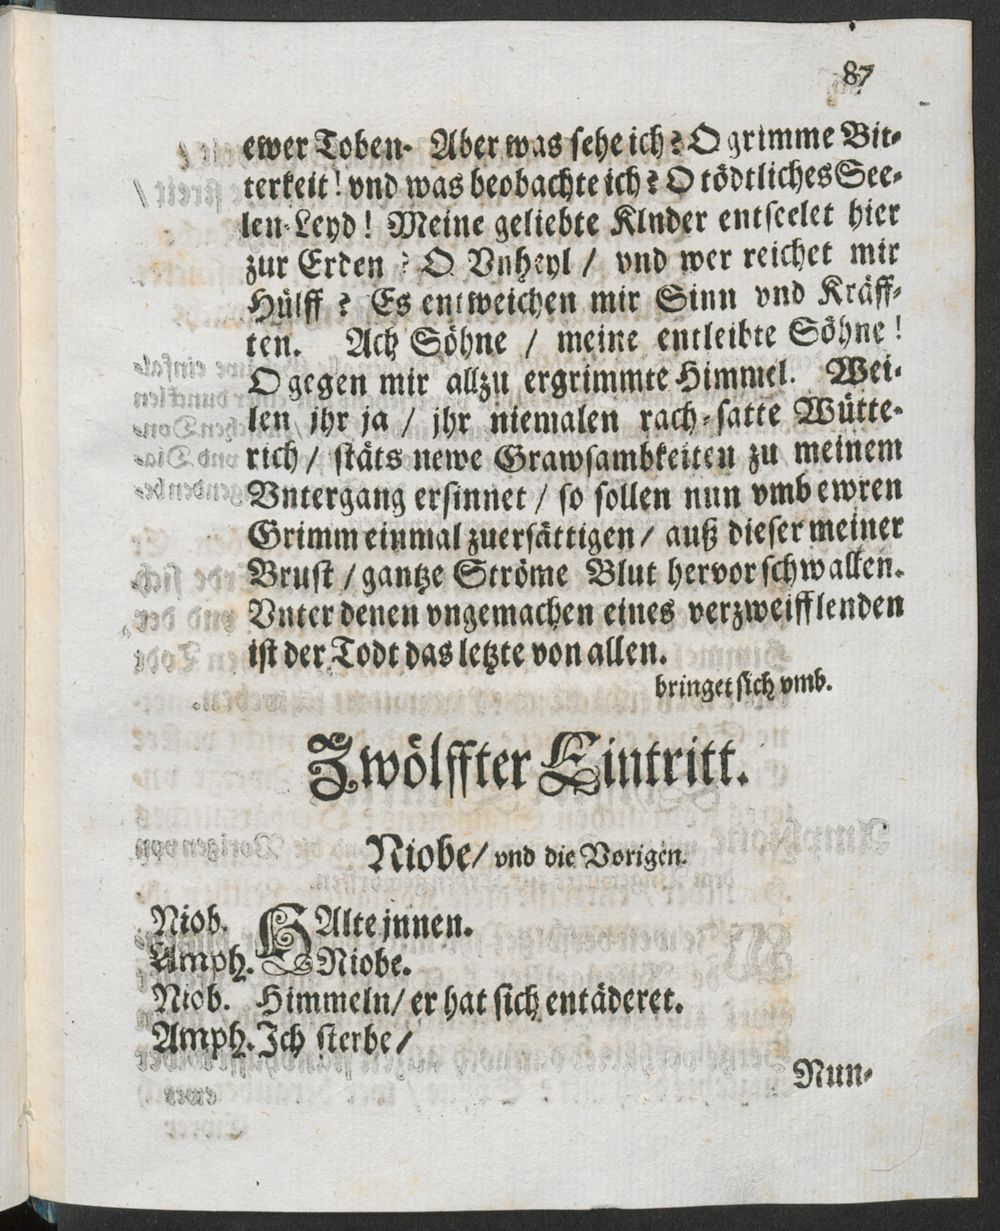 87
ewer Toben. Aber was sehe ich? O grimme Bit-
terkeit! vnd was beobachte ich? O tödtliches See-
len-Leyd! Meine geliebte KInder entseelet hier
zur Erden? O Vnheyl / vnd wer reichet mir
Hülff? Es entweichen mir Sinn vnd Kräff-
ten. Ach Söhne / meine entleibte Söhne!
O gegen mir allzu ergrimmte Himmel. Wei-
len jhr ja / jhr niemalen rach-satte Wütte-
rich / stäts newe Grawsambkeiten zu meinem
Vntergang ersinnet / so sollen nun vmb ewren
Grimm einmal zuersättigen / auß dieser meiner
Brust / gantze Ströme Blut hervor schwallen.
Vnter denen vngemachen eines verzweifflenden
ist der Todt das letzte von allen.
bringet sich vmb.
Zwölffter Eintritt.
Niobe / vnd die Vorigen.
Niob. HAlte jnnen.
Amph. Niobe.
Niob. Himmeln / er hat sich entäderet.
Amph. Ich sterbe /
Nun-